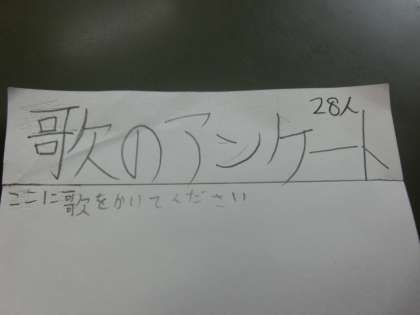 28人
歌のアンケート
ここに歌をかいてください